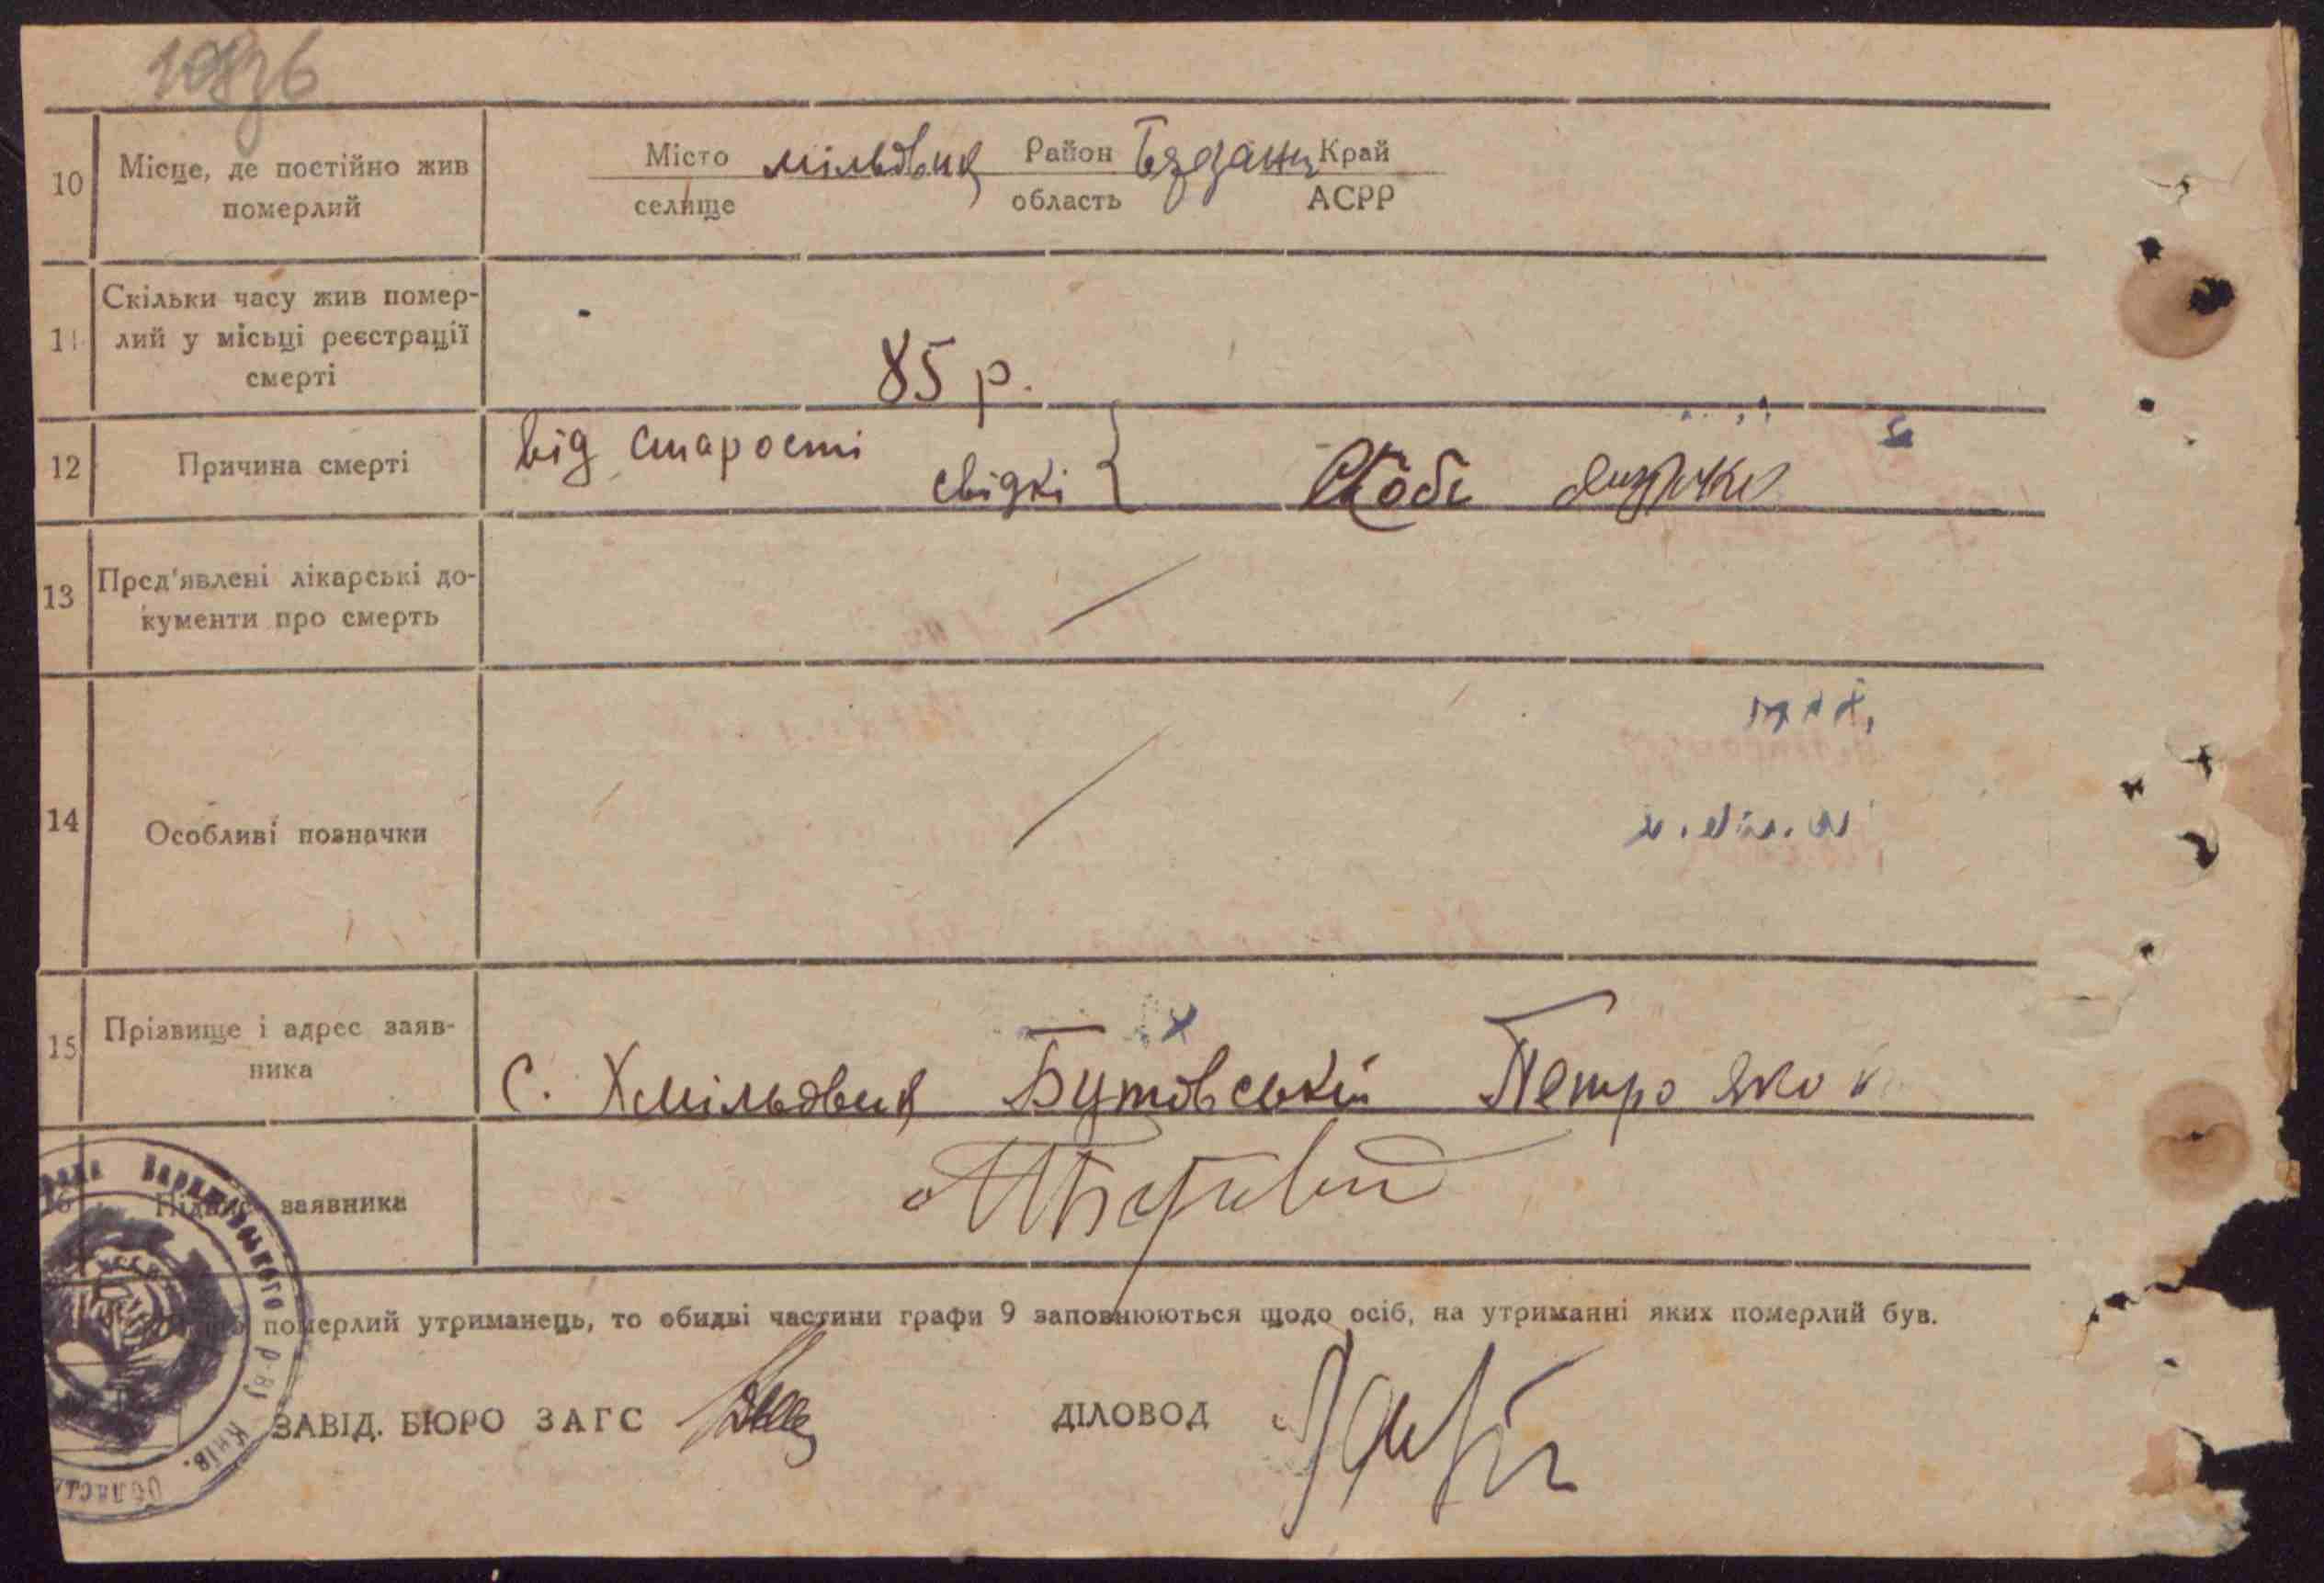 10
Місце, де постійно жив
померлий
Місто мільдвик Район Край
селище область АСРР
11
Скільки часу жив помер-
лий у місьці реєстрації
смерті
85 р.
12
Причина смерті
від старости
свідкі
13
Пред'явлені лікарські до-
кументи про смерть
14
Особливі позначки
15
Прізвище і адрес заяв-
ника
С. Хмільдвик Бутовській Петро Яко
16
Підпис заявника
померлий утриманець, то обидві частини графи 9 заповнюються щодо осіб, на утриманні яких померлий був.
ЗАВІД. БЮРО ЗАГС
ДІЛОВОД